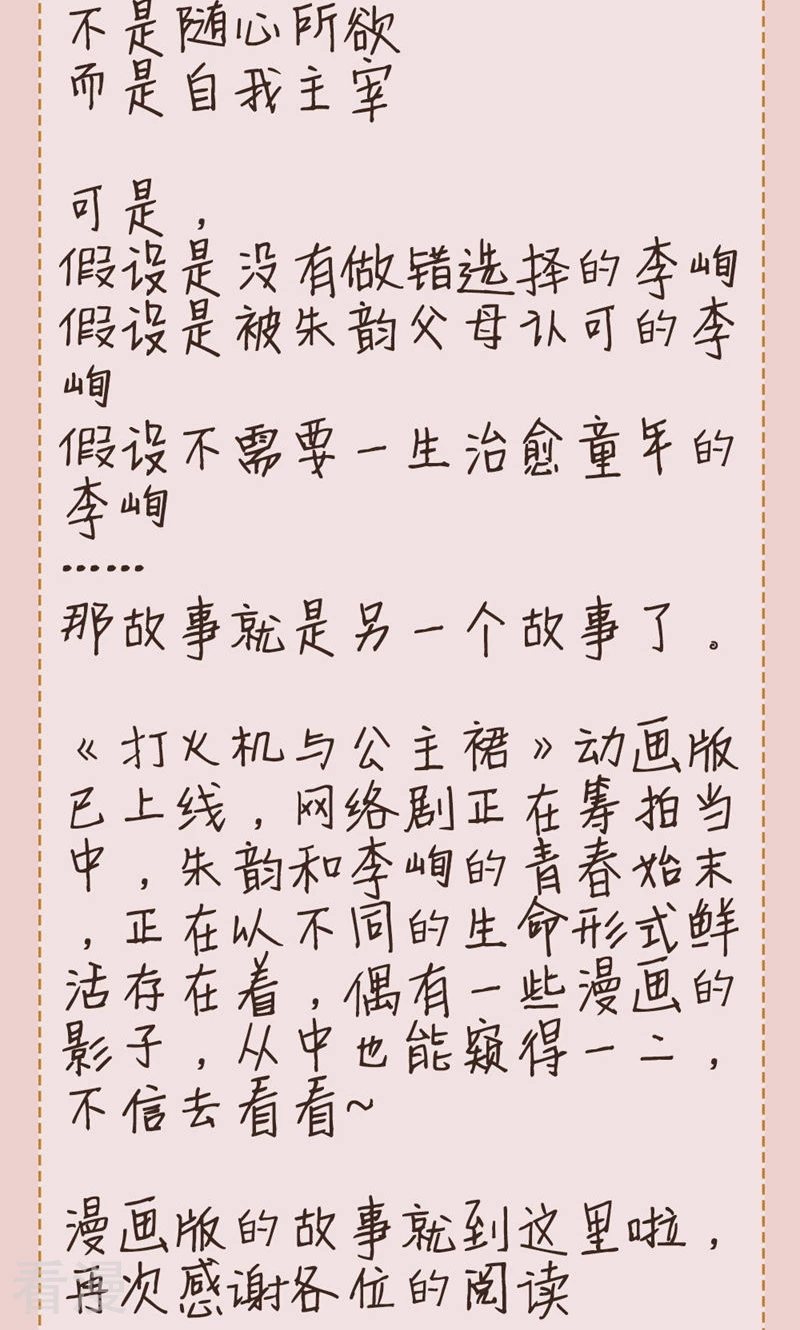 不是随心所欲
而是自我主宰
可是，
假设是没有做错选择的李峋
假设是被朱韵父母认可的李
峋
假设不需要一生治愈童年的
李峋
……
那故事就是另一个故事了。
《打火机与公主裙》动画版
已上线，网络剧正在筹拍当
中，朱韵和李峋的青春始末
，正在以不同的生命形式鲜
活存在着，偶有一些漫画的
影子，从中也能窥得一二，
不信去看看~
漫画版的故事就到这里啦，
再次感谢各位的阅读
看漫